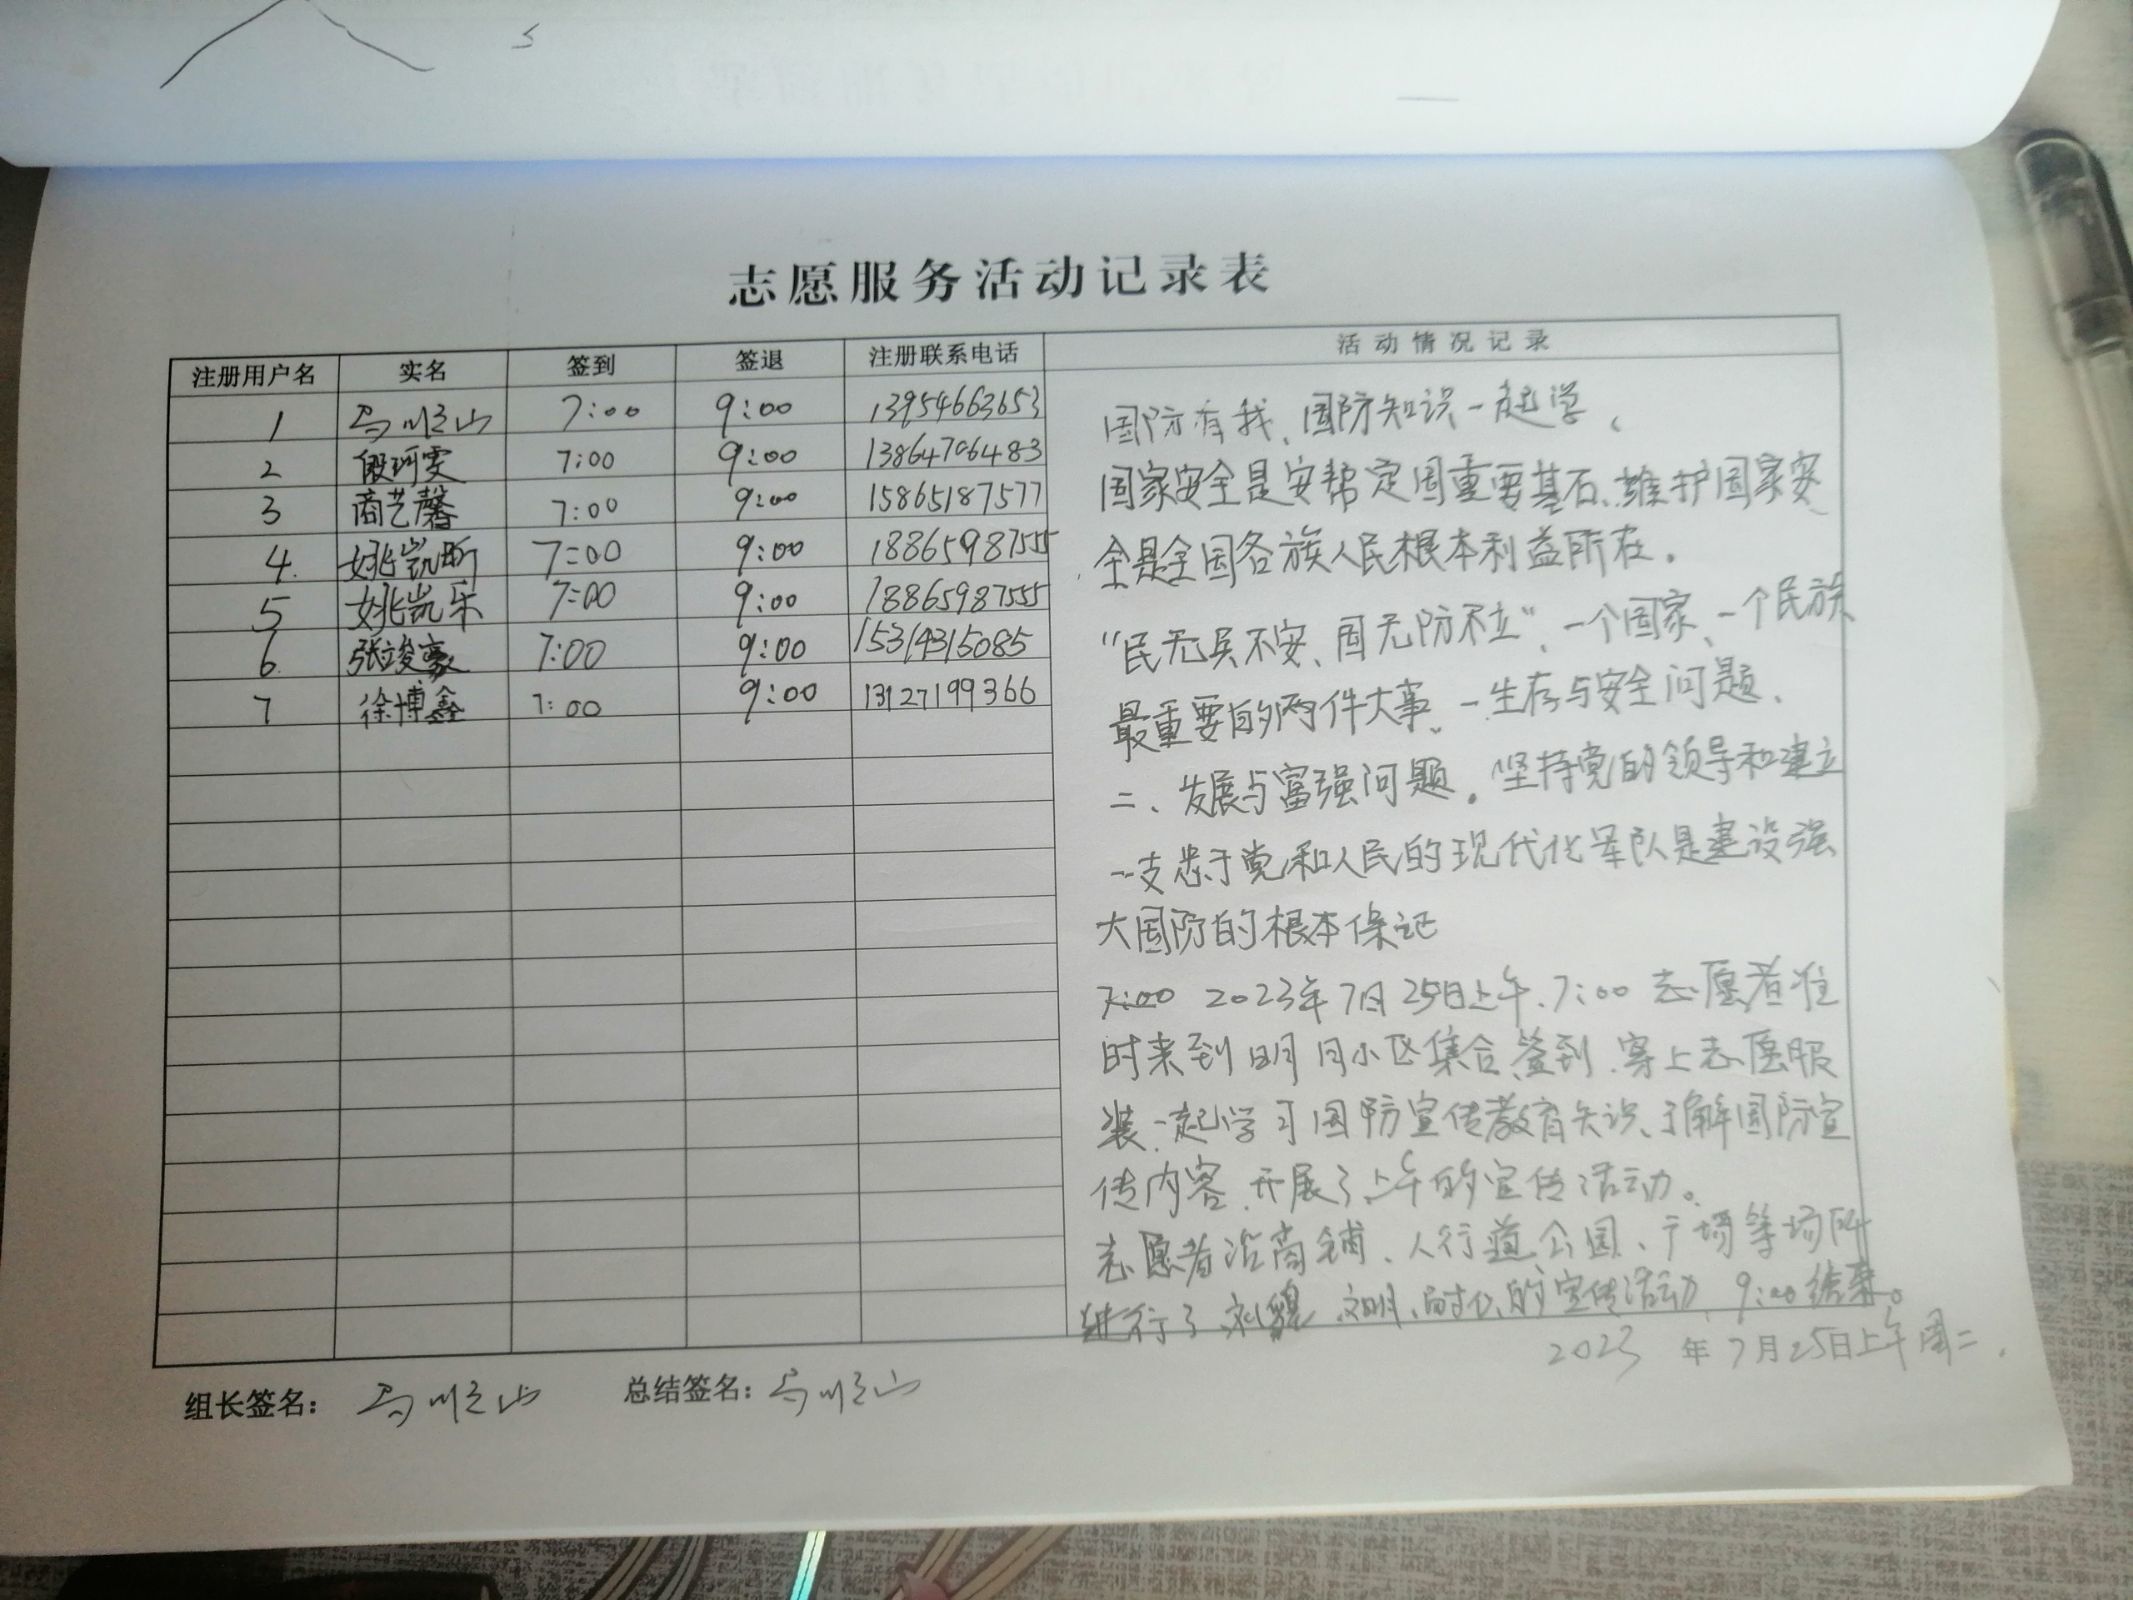 志愿服务活动记录表
注册用户名 实名 签到 签退 注册联系电话 活动情况记录
1 马顺山 7:00 9:00 13954663653
2 殷珂雯 7:00 9:00 13864706483
3 商艺馨 7:00 9:00 15865187577
4. 姚凯昕 7:00 9:00 18865987555
5 姚凯乐 7:00 9:00 18865987555
6. 张竣豪 7:00 9:00 15314315085
7 徐博鑫 7:00 9:00 13127199366
国防有我、国防知识一起学、
国家安全是安帮定国重要基石、维护国家安
全是全国各族人民根本利益所在。
“民无兵不安、国无防不立”、一个国家、一个民族
最重要的两件大事、一.生存与安全问题、
二、发展与富强问题。坚持党的领导和建立
一支忠于党和人民的现代化军队是建设强
大国防的根本保证
7:00 2023年7月25日上午.7:00 志愿者准
时来到明月小区集合、签到.穿上志愿服
装.一起学习国防宣传教育知识、了解国防宣
传内容.开展了上午的宣传活动。
志愿者沿商铺、人行道公园、广场等场所
进行了 文明、的宣传活动、9:00结束。
2023 年7月25日上午周二.
组长签名： 马顺山 总结签名： 马顺山